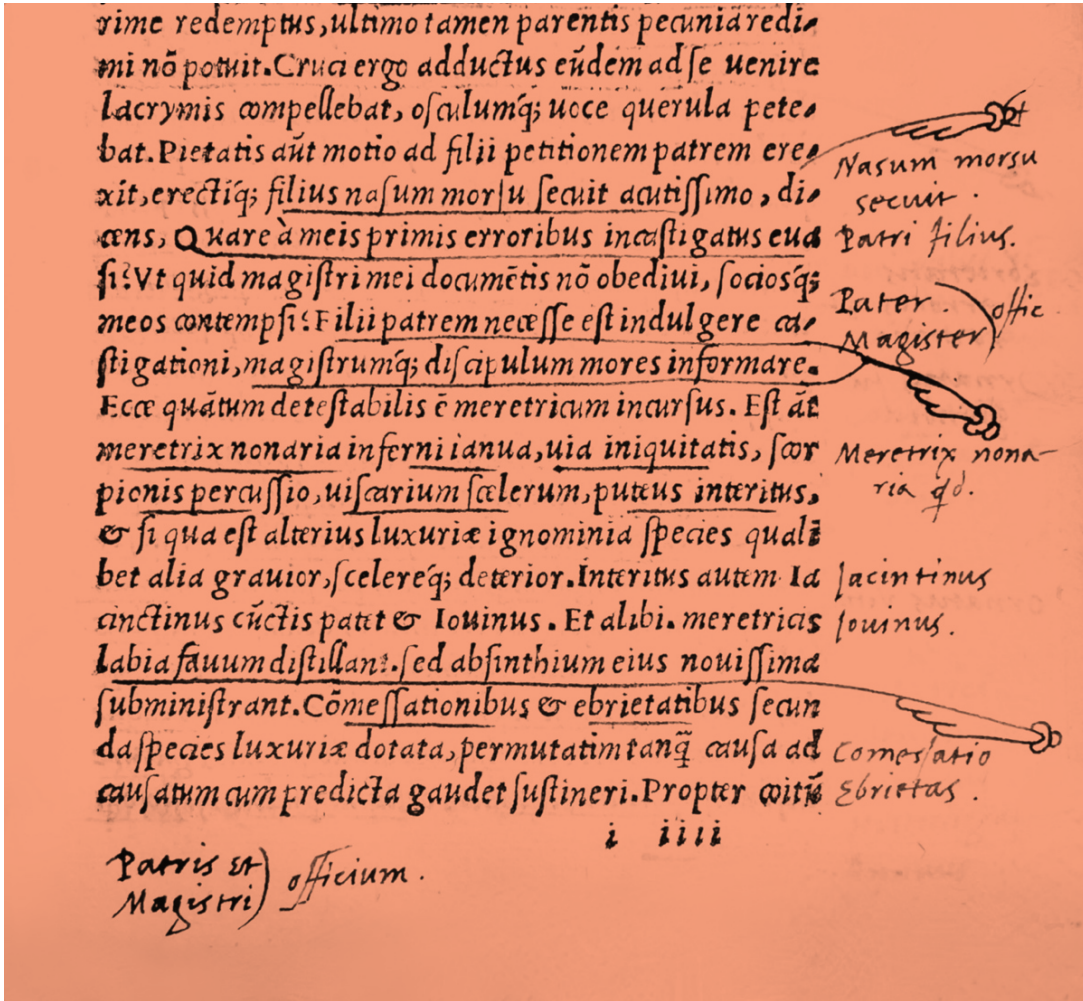 rime redemptus, ultimo tamen parentis pecunia redi-
mi nõ potuit. Cruci ergo adductus eũdem ad se uenire
lacrymis compellebat, osculumq́; uoce querula pete-
bat. Pietatis aũt motio ad filii petitionem patrem ere-
xit, erectiq́; filius nasum morsu secuit acutissimo, di-
cens, Quare à meis primis erroribus incastigatus eua
si? Vt quid magistri mei documẽtis nõ obediui, sociosq́;
meos contempsi? Filii patrem necesse est indulgere ca-
stigationi, magistrumq́; discipulum mores informare.
Ecce quãtum detestabilis ẽ meretricum incursus. Est ãt
meretrix nonaria inferni ianua, uia iniquitatis, scor
pionis percussio, uiscarium scelerum, puteus interitus,
& si qua est alterius luxuriæ ignominia species quali
bet alia grauior, scelereq́; deterior. Interitus autem Ia
cinctinus cũctis patet & Iouinus. Et alibi. meretricis
labia fauum distillant. sed absinthium eius nouissima
subministrant. Cõmessationibus & ebrietatibus secun
da species luxuriæ dotata, permutatim tanq̃ causa ad
causatum cum predicta gaudet sustineri. Propter coitũ
i iiii
Nasum morsu
secuit.
Patri filius.
Pater
Magister) offic
Meretrix nona-
ria qd.
Jacintinus
Jouinus.
Comessatio
Ebrietas.
Patris et
Magistri) officium.